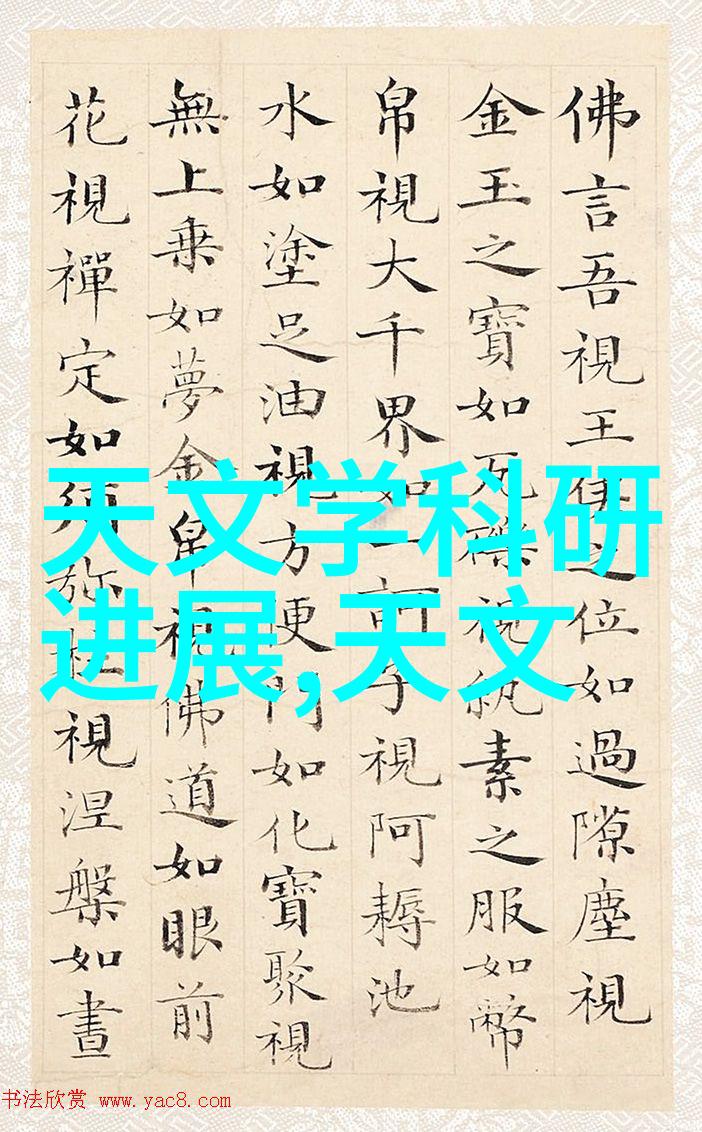 佛言吾視王侯之位如過隙塵視
金玉之寶如瓦礫視紈素之服如幣
帛視大千界如一訶子視阿耨池
水如塗足油視方便門如化寶聚視
無上乗如夢金帛視佛道如眼前
花視禪定如須弥柱視涅槃如晝
天文学科研
进展,天文
书法欣赏 www.yac8.com